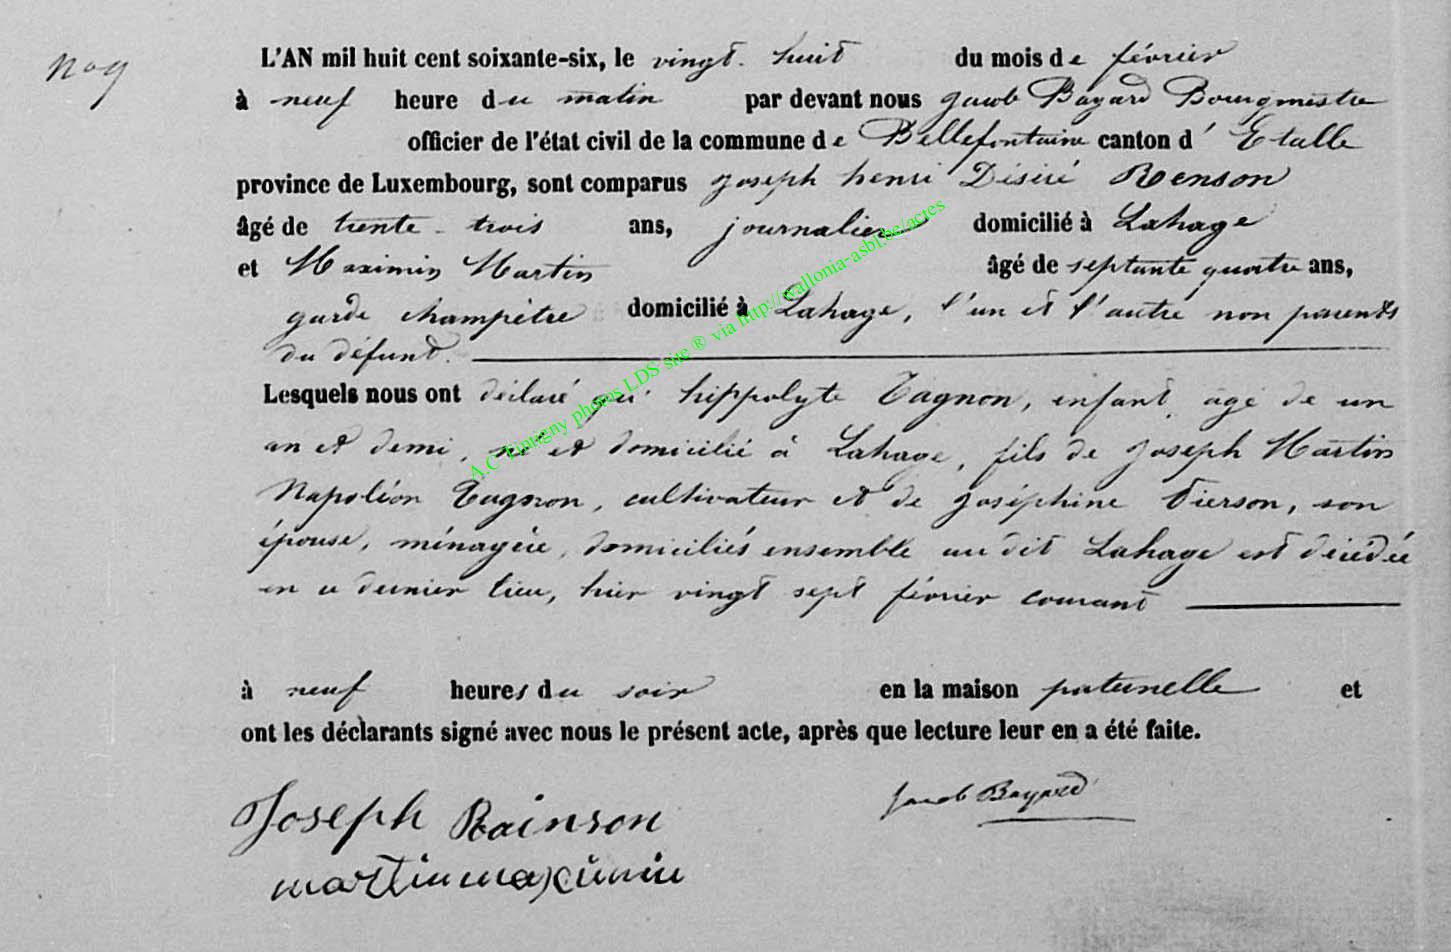 No 9
L'AN mil huit cent soixante-six, le vingt-huit du mois de février
à neuf heure du matin par devant nous Jacob Bayard Bourgmestre
officier de l'état civil de la commune de Bellefontaine canton d' Etalle
province de Luxembourg, sont comparus Joseph henri Désiré Renson
âgé de trente-trois ans, journalier domicilié à Lahage
et Maximin Martin âgé de septante quatre ans,
garde champêtre domicilié à Lahage, l'un et l'autre non parents
du défunt.
Lesquels nous ont déclaré qu' hippolyte Tagnon, enfant, âgé de un
an et demi, né et domicilié à Lahage, fils de Joseph Martin
Napoléon Tagnon, cultivateur et de Joséphine Pierson, son
épouse, ménagère, domiciliés ensemble au dit Lahage est décédé
en ce dernier lieu, hier vingt sept février courant
à neuf heures du soir en la maison paternelle et
ont les déclarants signé avec nous le présent acte, après que lecture leur en a été faite.
Jacob Bayard
Joseph Rainson
martin maximin
A.C Tintigny photos LDS site ® via http://wallonia-asbl.be/actes